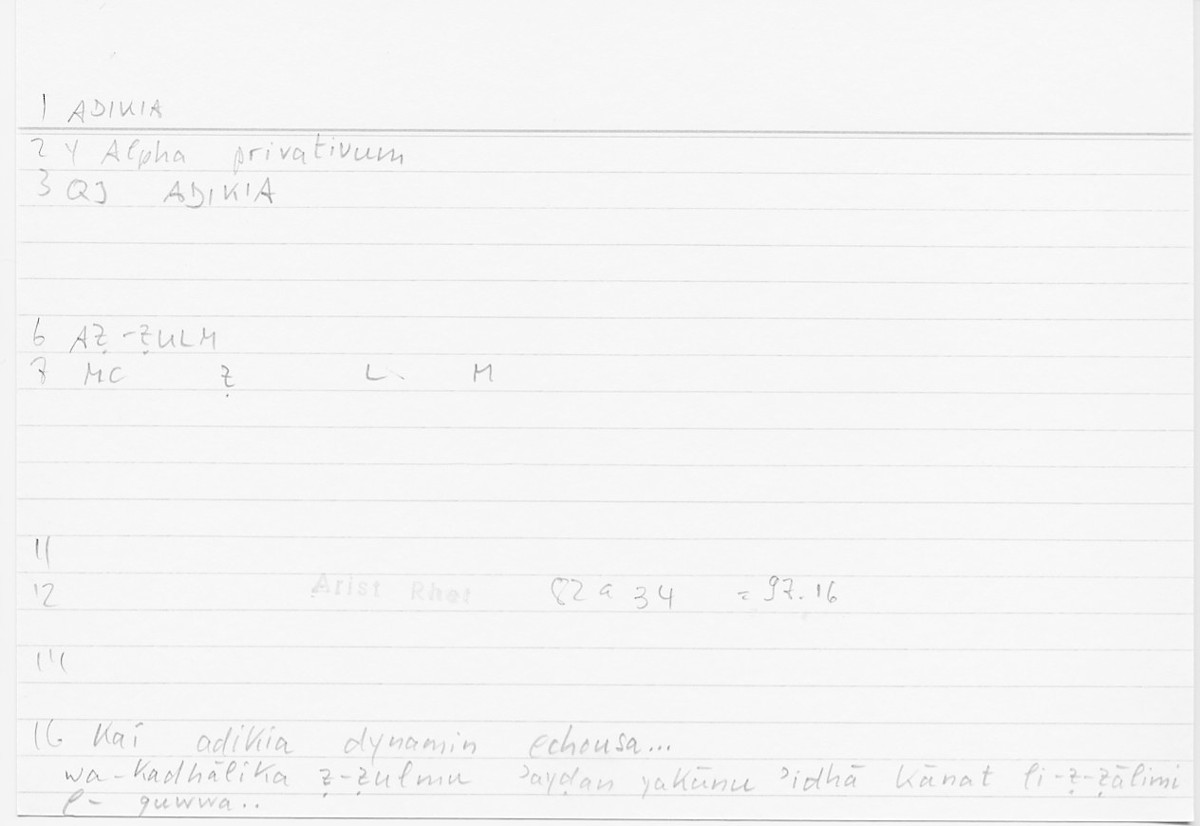 1 ADIKIA
2 Y Alpha privativum
3 QJ ADIKIA
6 AẒ-ẒULM
7 MC Ẓ L M
11
12 Arist Rhet 82 a 34 = 97.16
14
16 Kaí adikia dynamin echousa...
wa-kadhālika ẓ-ẓulmu ʾayḍan yakūnu ʾidhā kānat li-ẓ-ẓālimi
l- quwwa..